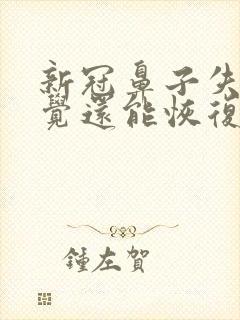 新冠鼻子失
覺還能恢復
鍾左賀